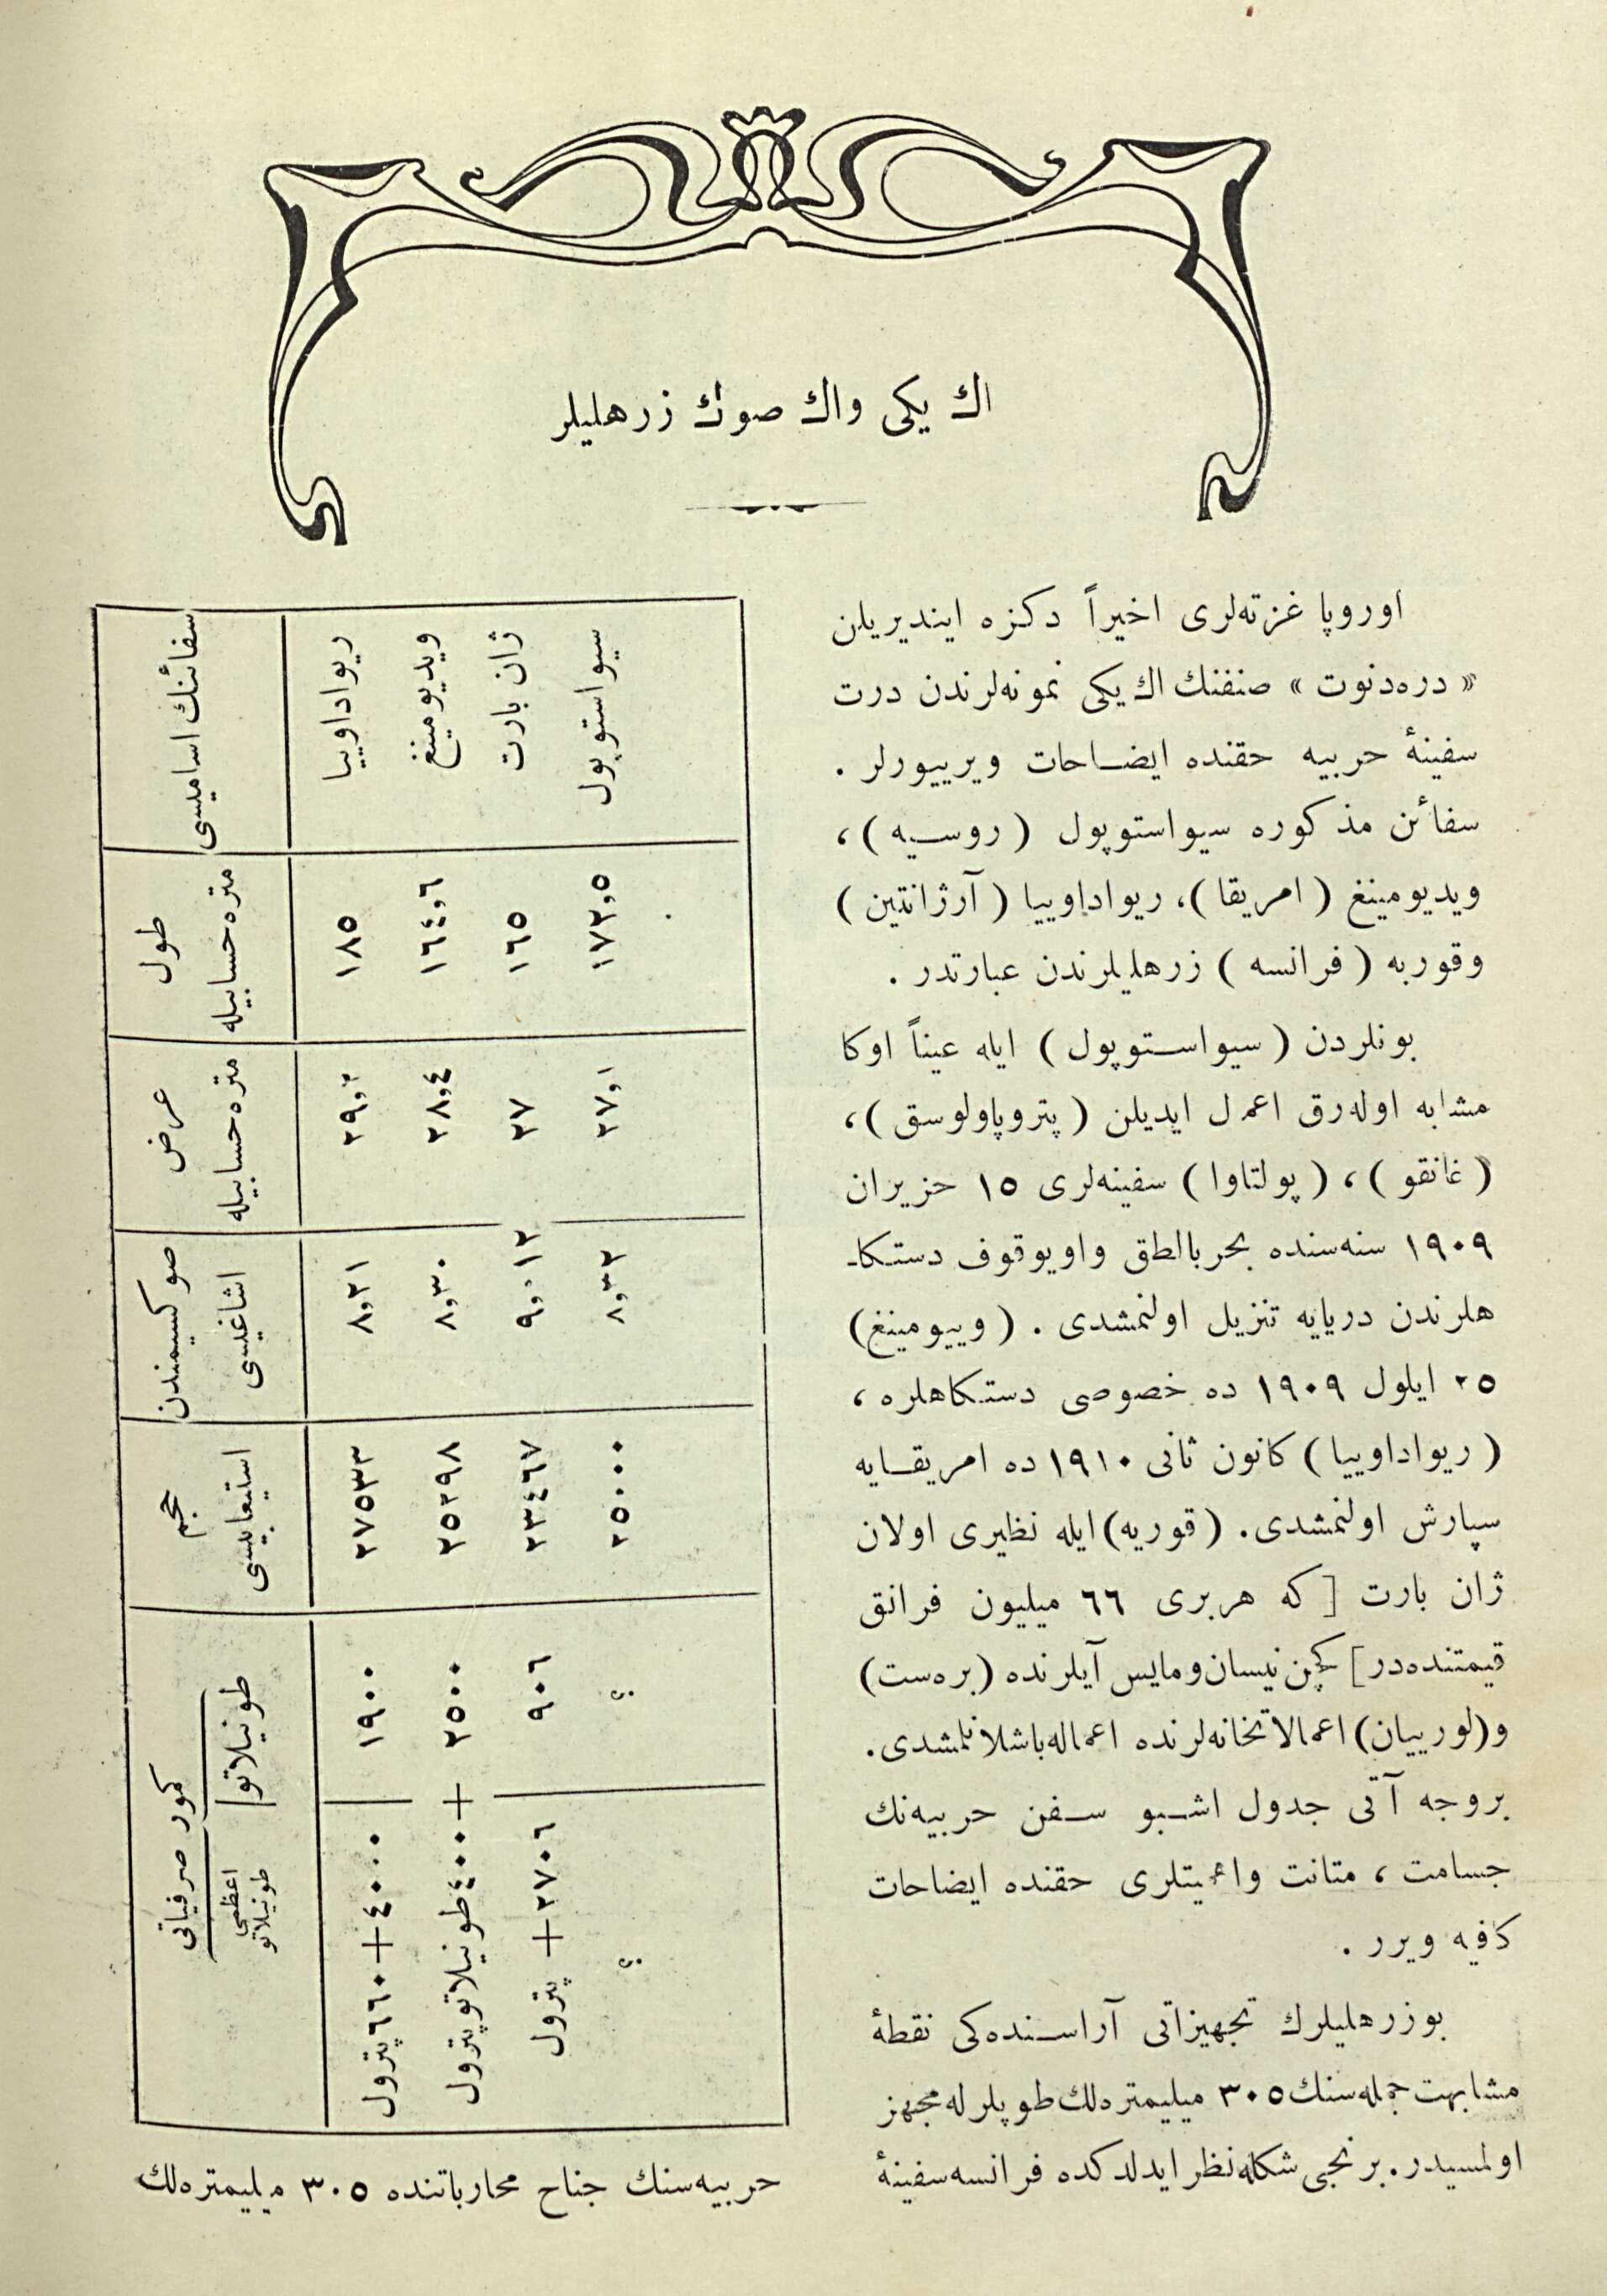 اك یكی واك صوك زرهلیلر
اوروپا غزته‌لری اخیراً دكزه ایندیریلن
« دره‌دنوت » صنفنك اك یكی نمونه‌لرندن درت
سفینهٔ حربیه حقنده ایضاحات ویرییورلر .
سفائن مذكوره سیواستوپول ( روسیه ) ،
ویدیومینغ ( امریقا ) ، ریواداوییا ( آرژانتین )
وقوربه ( فرانسه ) زرهلیلرندن عبارتدر .
بونلردن ( سیواستوپول ) ایله عیناً اوكا
مشابه اوله‌رق اعمل ایدیلن ( پتروپاولوسق ) ،
( غانقو ) ، ( پولتاوا ) سفینه‌لری ١٥ حزیران
١٩٠٩ سنه‌سنده بحر بالطق واویوقوف دستكا‌ـ
هلرندن دریایه تنزیل اولنمشدی . ( وییومینغ )
٢٥ ایلول ١٩٠٩ ده خصوصی دستكاهلره ،
( ریواداوییا ) كانون ثانی ١٩١٠ ده امریقایه
سپارش اولنمشدی . ( قوریه ) ایله نظیری اولان
ژان بارت [ كه هربری ٦٦ میلیون فرانق
قیمتنده‌در ] كچن نیسان ومایس آیلرنده ( بره‌ست )
و ( لورییان ) اعمالاتخانه‌لرنده اعماله باشلانلمشدی .
بروجه آتی جدول اشبو سفن حربیه‌نك
جسامت ، متانت واهمیتلری حقنده ایضاحات
كافیه ویرر .
بوزرهلیلرك تجهیزاتی آراسنده‌كی نقطهٔ
مشابهت جمله‌سنك ٣٠٥ میلیمتره‌لك طوپلرله مجهز
اولمسیدر . برنجی شكله نظر ایدلدكده فرانسه سفینهٔ
سفائنك اسامیسی
طول متره حسابیله
عرض متره حسابیله
صو كسیمندن اشاغیسی
حجم استیعابیسی
كمور صرفیاتی
طونیلاتو
اعظمی طونیلاتو
ریواداوییا
١٨٥
٨,٢١
٢٧٥٣٣
١٩٠٠
٤٠٠٠ + ٦٦٠ پترول
ویدیومینغ
١٦٤,٦
٢٨,٤
٨,٣٠
٢٥٢٩٨
٢٥٠٠
+ ٤٠٠ طونیلاتو پترول
ژان بارت
١٦٥
٢٧
٢٣٤٦٧
٩٠٦
٢٧٠٦ + پترول
سیواستوپول
١٧٢,٥
٢٧,١
٨,٣٢
٢٥٠٠٠
؟
؟
حربیه‌سنك جناح محارباتنده ٣٠٥ میلیمتره‌لك